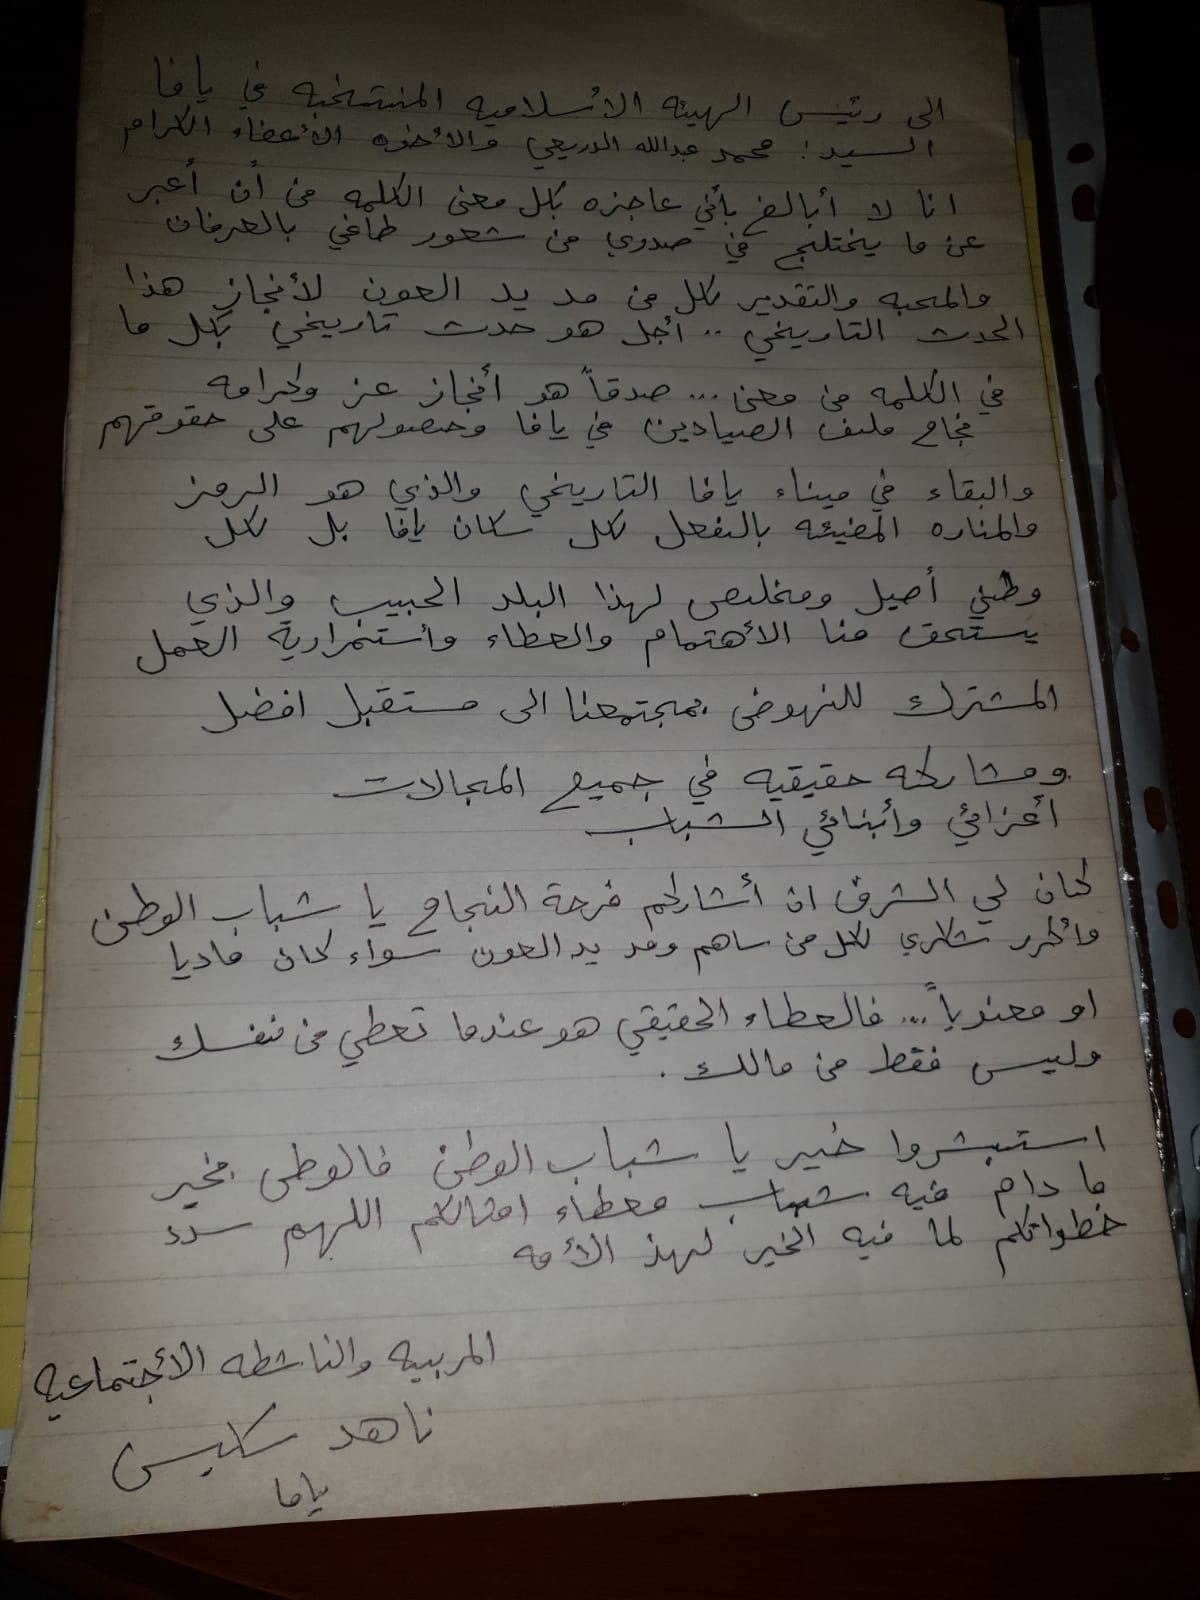 الى رئيس الهيئه الأسلاميه المنتخبه في يافا
السيد: محمد عبدالله الدريعي والأخوه الأعضاء الكرام
انا لا أبالغ بأني عاجزه بكل معنى الكلمه من أن أعبر
عن ما يختلج في صدري من شعور طاغي بالعرفان
والمحبه والتقدير لكل من مد يد العون لأنجاز هذا
الحدث التاريخي .. أجل هو حدث تاريخي بكل ما
في الكلمه من معنى ... صدقاً هو أنجاز عز وكرامه
نجاح ملف الصيادين في يافا وحصولهم على حقوقهم
والبقاء في ميناء يافا التاريخي والذي هو الرمز
والمناره المضيئه بالفعل لكل سكان يافا بل لكل
وطني أصيل ومخلص لهذا البلد الحبيب والذي
يستحق منا الأهتمام والعطاء وأستمرارية العمل
المشترك للنهوض بمجتمعنا الى مستقبل افضل
ومشاركه حقيقيه في جميع المجالات
أعزائي وأبنائي الشباب
كان لي الشرف ان أشارككم فرحة النجاح يا شباب الوطن
وأكرر شكري لكل من ساهم ومد يد العون سواء كان ماديا
او معنوياً ... فالعطاء الحقيقي هو عندما تعطي من نفسك
وليس فقط من مالك .
استبشروا خير يا شباب الوطن فالوطن بخير
ما دام فيه شباب معطاء امثالكم اللهم سدد
خطواتكم لما فيه الخير لهذ الأمه
المربيه والناشطه الأجتماعيه
ناهد سكيس
يافا